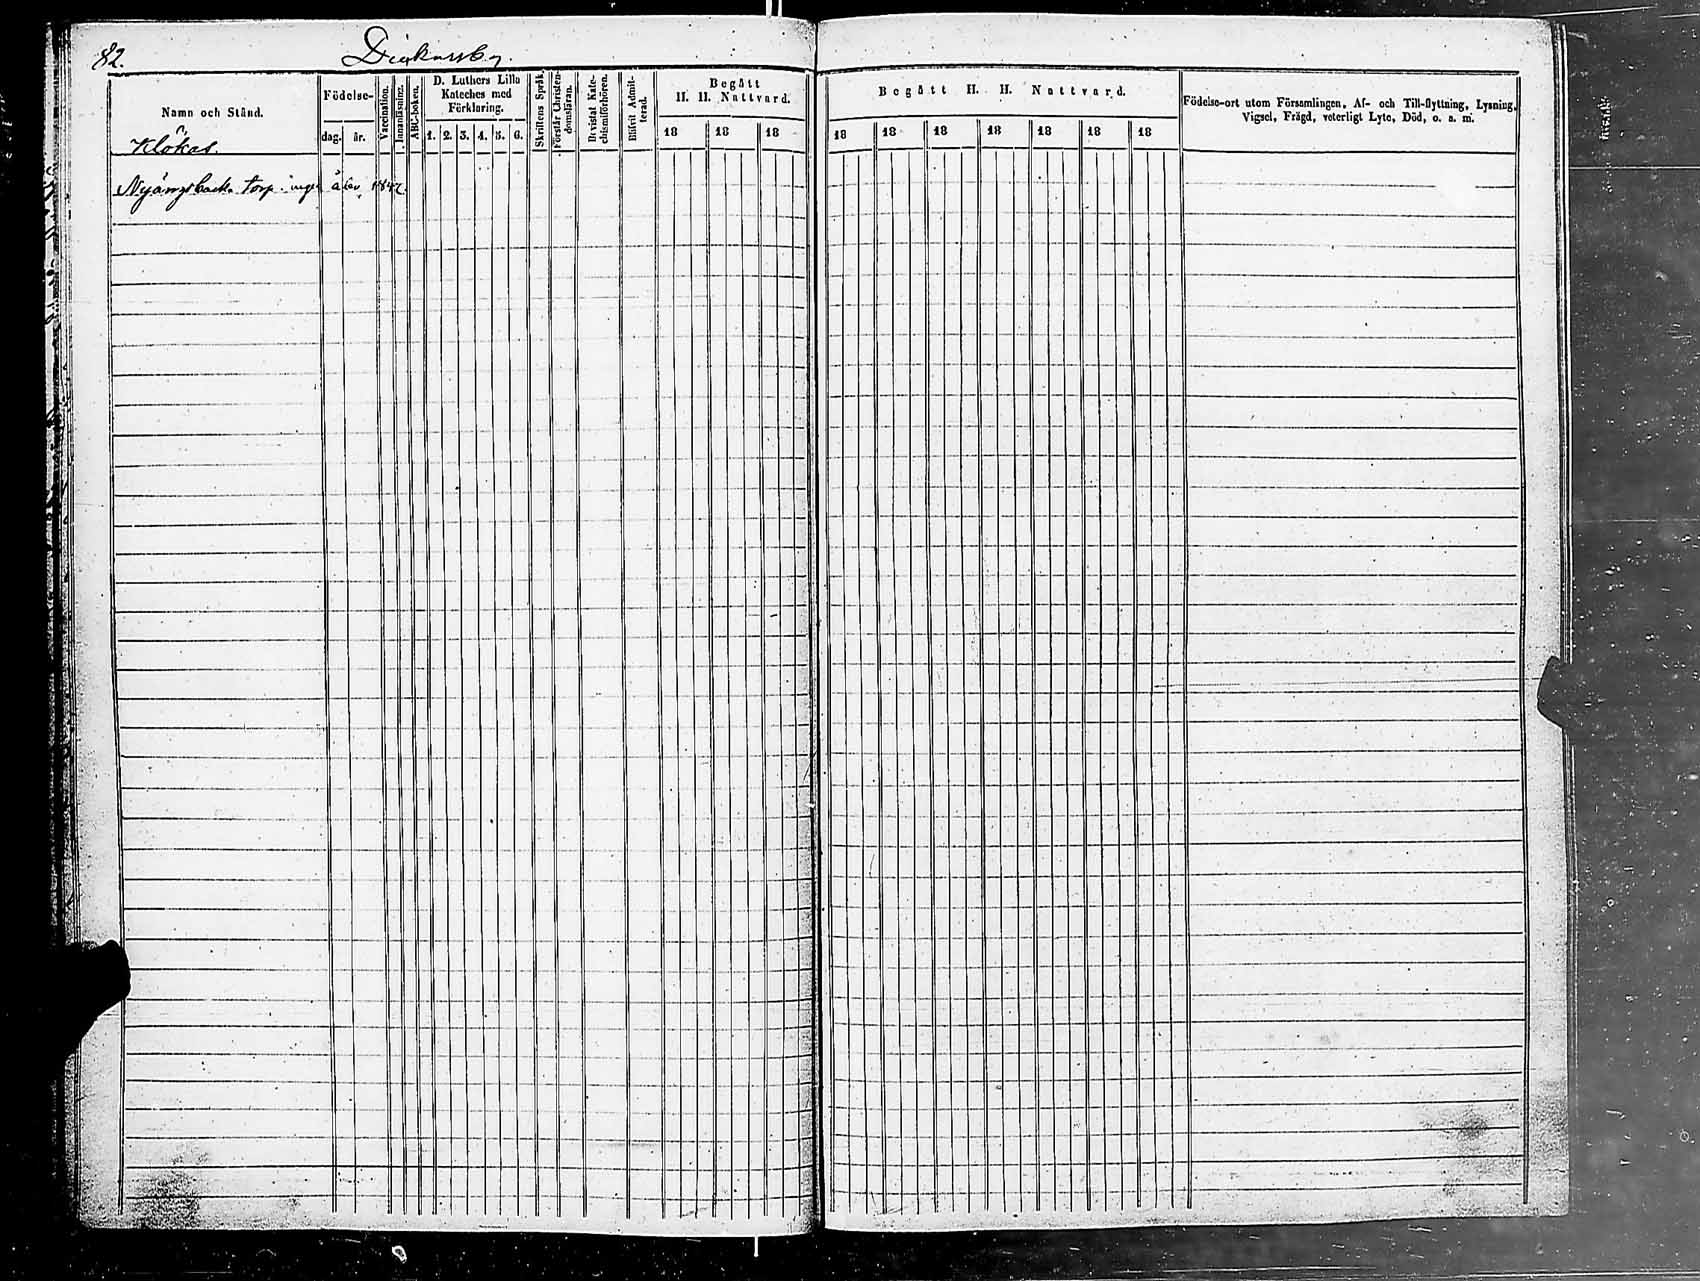 82.
Namn och Stånd.
Klökas.
Födelse-
dag. år.
Vaccination.
Innanläsning.
ABC-boken.
D. Luthers Lilla
Kateches med
Förklaring.
1. 2. 3. 4. 5. 6.
Skriftens Språk.
Förstår Christen-
domsläran.
Bevistat Kate-
chismiförhören.
Blifvit Admit-
terad.
Begått
H. H. Nattvard.
18 18 18
Begått H. H. Nattvard.
18 18 18 18 18 18 18
Födelse-ort utom Församlingen, Af- och Till-flyttning, Lysning,
Vigsel, Frägd, veterligt Lyte, Död, o. s. m.
Nyängsbacka torp ingen åbo 1842.